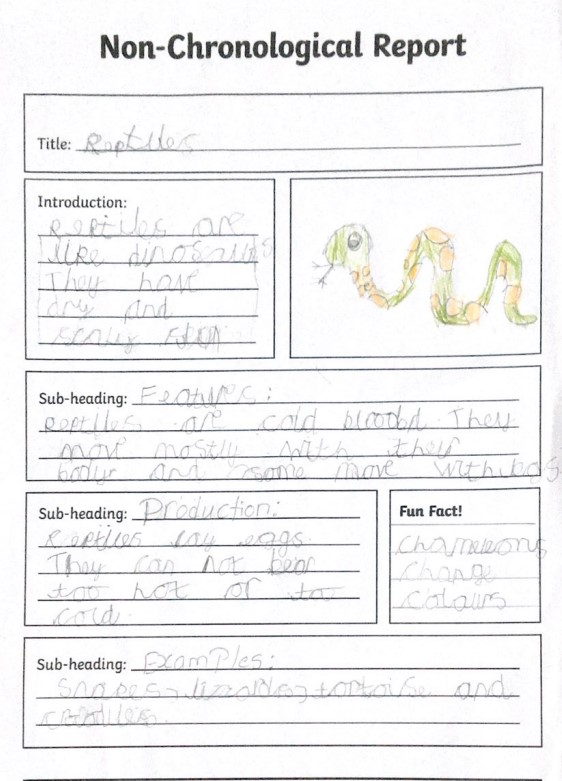 Non-Chronological Report
Title: Reptiles
Introduction:
Reptiles are
like dinosaurs
They have
dry and
scaly
Sub-heading: Features:
Reptiles are cold They
move mostly with their
body and some move with legs
Sub-heading: Production:
Reptiles lay eggs.
They can not bear
too hot or too
cold.
Fun Fact!
Chameleons
change
colours
Sub-heading: Examples:
tortoise and